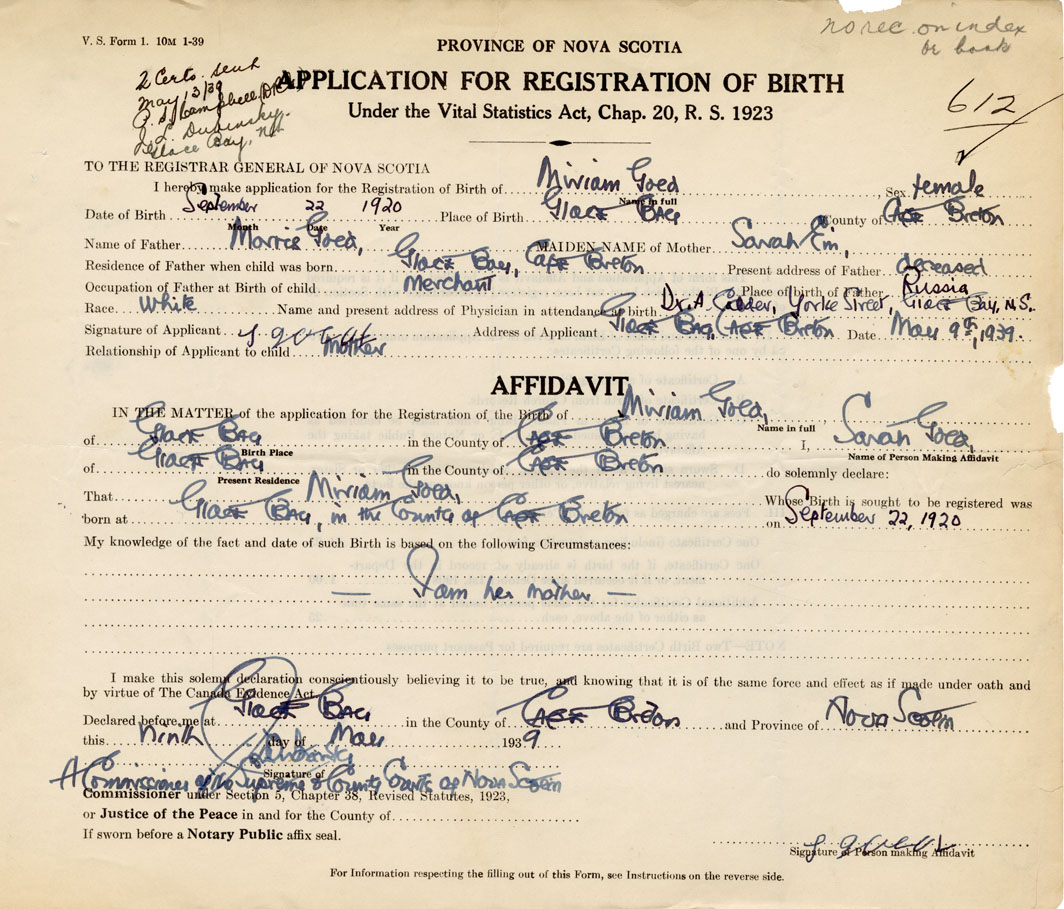 V. S. Form 1. 10M 1-39
no rec. on index
or book
PROVINCE OF NOVA SCOTIA
2 Certs. sent
May 13/39
APPLICATION FOR REGISTRATION OF BIRTH
Campbell
Under the Vital Statistics Act, Chap. 20, R. S. 1923
612
L. Dubinsky.
Glace Bay, NS
TO THE REGISTRAR GENERAL OF NOVA SCOTIA
I hereby make application for the Registration of Birth of Miriam Goed Sex female
Name in full
Date of Birth September 22 1920 Place of Birth Glace Bay County of Cape Breton
Month Date Year
Name of Father Morris Goed, MAIDEN NAME of Mother Sarah Ein,
Residence of Father when child was born Glace Bay, Cape Breton Present address of Father deceased
Occupation of Father at Birth of child Merchant Place of birth of Father Russia
Race White Name and present address of Physician in attendance at birth Dr. A. Calder, Yorke Street, Glace Bay, N.S.
Signature of Applicant Address of Applicant Glace Bay, Cape Breton Date May 9th, 1939.
Relationship of Applicant to child Mother
AFFIDAVIT
IN THE MATTER of the application for the Registration of the Birth of Miriam Goed,
Name in full
of Glace Bay in the County of Cape Breton I, Sarah Goed,
Birth Place Name of Person Making Affidavit
of Glace Bay in the County of Cape Breton do solemnly declare:
Present Residence
That Miriam Goed, Whose Birth is sought to be registered was
born at Glace Bay, in the County of Cape Breton on September 22, 1920
My knowledge of the fact and date of such Birth is based on the following Circumstances:
— I am her mother —
I make this solemn declaration conscientiously believing it to be true, and knowing that it is of the same force and effect as if made under oath and
by virtue of The Canada Evidence Act.
Declared before me at Glace Bay in the County of Cape Breton and Province of Nova Scotia
this ninth day of May 1939
Signature of
A Commissioner of the Supreme & County Courts of Nova Scotia
Commissioner under Section 5, Chapter 38, Revised Statutes, 1923,
or Justice of the Peace in and for the County of
If sworn before a Notary Public affix seal.
Signature of Person making Affidavit
For Information respecting the filling out of this Form, see Instructions on the reverse side.